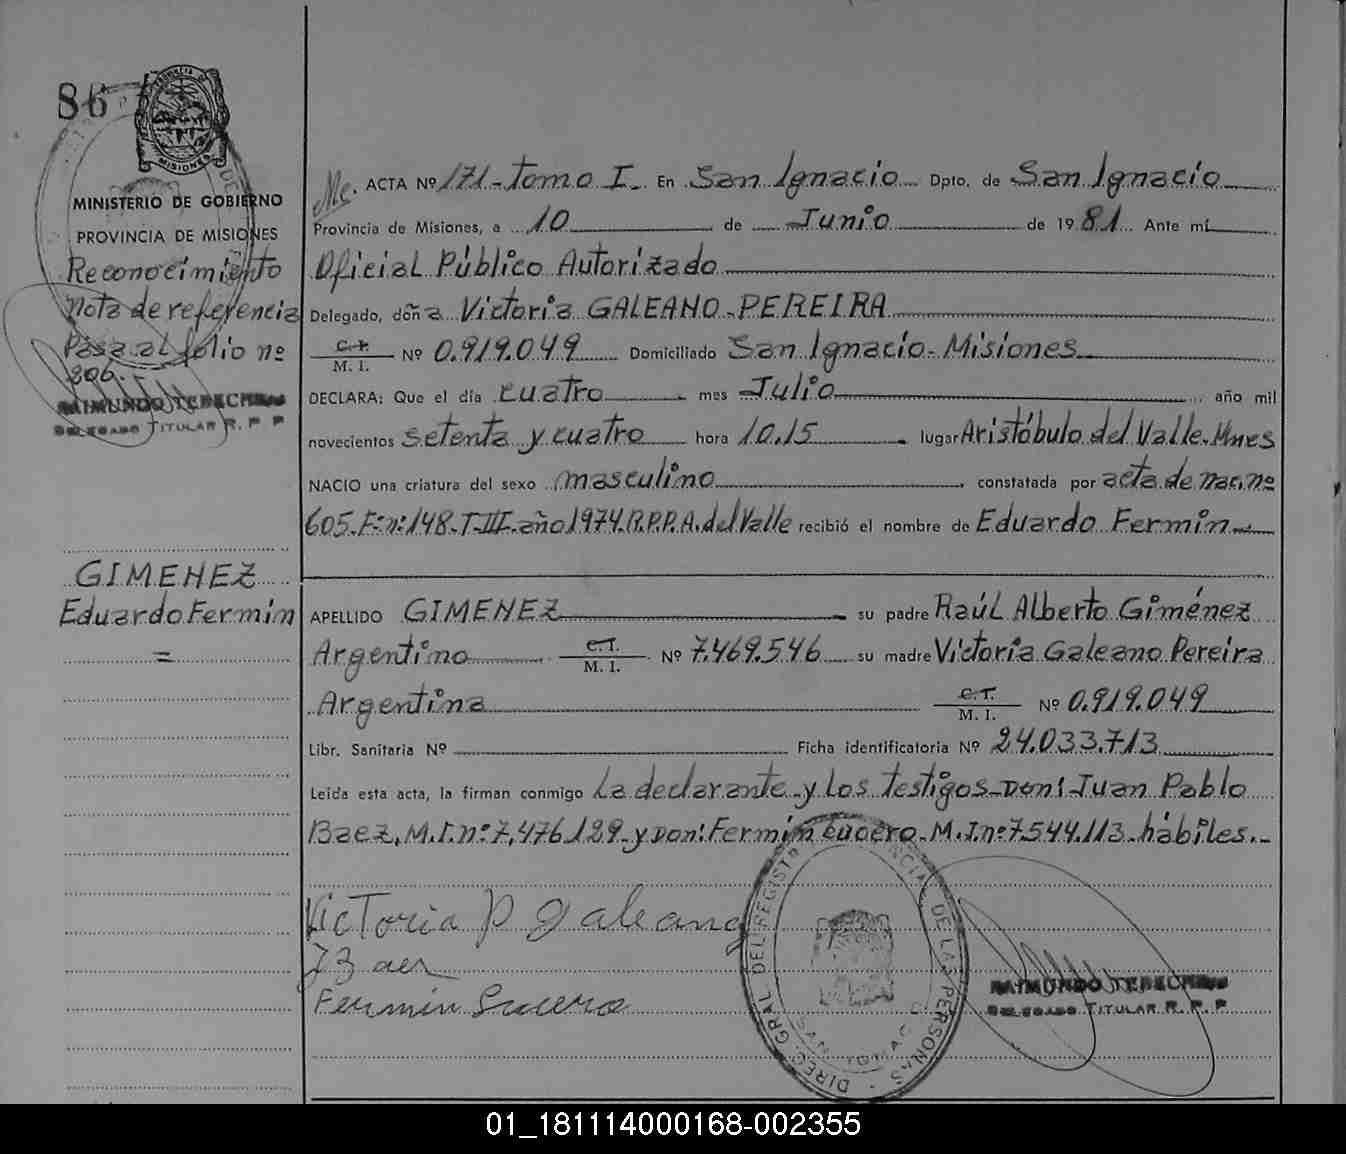 86
PROVINCIA DE
MISIONES
MINISTERIO DE GOBIERNO
PROVINCIA DE MISIONES
Reconocimiento
nota de referencia
Pasa al folio nº
206.
RAIMUNDO TERECHEN
DELEGADO TITULAR R. P. P.
GIMENEZ
Eduardo Fermín
=
ACTA Nº 171 - Tomo I. En San Ignacio Dpto. de San Ignacio
Provincia de Misiones, a 10 de Junio de 1981. Ante mí
Oficial Público Autorizado
Delegado, doña Victoria GALEANO PEREIRA
C. I. / M. I. Nº 0.919.049 Domiciliado San Ignacio - Misiones
DECLARA: Que el día cuatro mes Julio año mil
novecientos setenta y cuatro hora 10.15 lugar Aristóbulo del Valle. Mnes
NACIO una criatura del sexo masculino constatada por acta de nac. nº
605. F: nº 148. T-III- año 1974. R.P.P. A. del Valle recibió el nombre de Eduardo Fermín
APELLIDO GIMENEZ su padre Raúl Alberto Giménez
Argentino C. I. / M. I. Nº 7.469.546 su madre Victoria Galeano Pereira
Argentina C. I. / M. I. Nº 0.919.049
Libr. Sanitaria Nº Ficha identificatoria Nº 24.033.713
Leída esta acta, la firman conmigo La declarante y los testigos Don: Juan Pablo
Baez, M.I. nº 7.476.129 y Don: Fermín Lucero - M.I. nº 7.544.113 - hábiles.-
Victoria P Galeano
Baez
Fermin Lucero
DIREC. GRAL. DEL REGISTRO PROVINCIAL DE LAS PERSONAS
SAN IGNACIO
RAIMUNDO TERECHEN
DELEGADO TITULAR R. P. P.
01_181114000168-002355